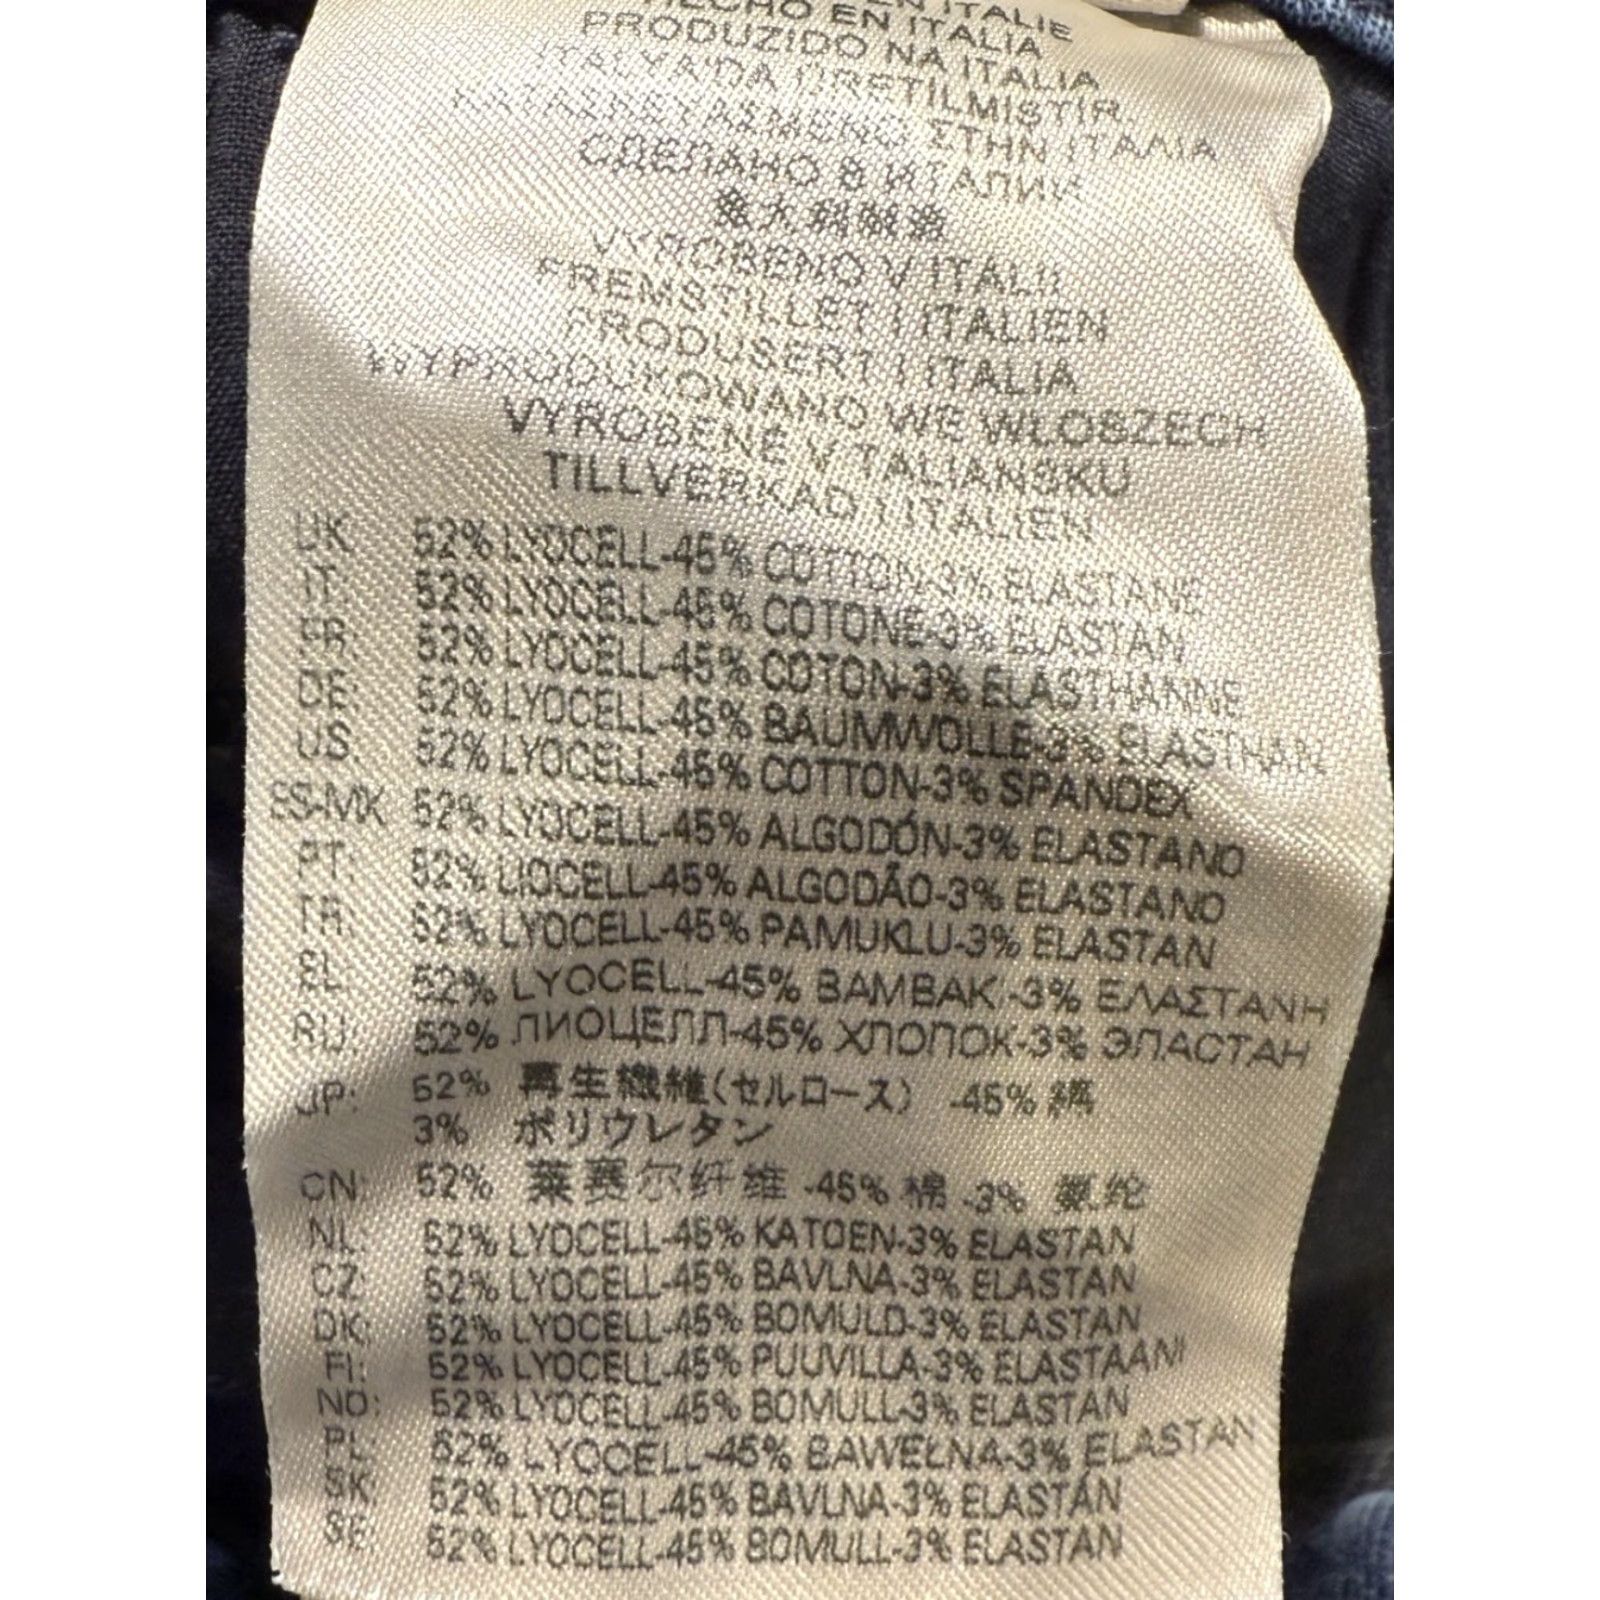 EN ITALIE
HECHO EN ITALIA
PRODUZIDO NA ITALIA
ITALYA'DA ÜRETILMISTIR
ΣΤΗΝ ΙΤΑΛΙΑ
СДЕЛАНО В ИТАЛИИ
意大利制造
VYROBENO V ITALII
FREMSTILLET I ITALIEN
PRODUSERT I ITALIA
WYPRODUKOWANO WE WLOSZECH
VYROBENÉ V TALIANSKU
TILLVERKAD I ITALIEN
UK: 52% LYOCELL-45% COTTON-3% ELASTANE
IT: 52% LYOCELL-45% COTONE-3% ELASTAN
FR: 52% LYOCELL-45% COTON-3% ELASTHANNE
DE: 52% LYOCELL-45% BAUMWOLLE-3% ELASTHAN
US: 52% LYOCELL-45% COTTON-3% SPANDEX
ES-MX: 52% LYOCELL-45% ALGODÓN-3% ELASTANO
PT: 52% LIOCELL-45% ALGODÃO-3% ELASTANO
TR: 52% LYOCELL-45% PAMUKLU-3% ELASTAN
EL: 52% LYOCELL-45% BAMBAK -3% ΕΛΑΣΤΑΝΗ
RU: 52% ЛИОЦЕЛЛ-45% ХЛОПОК-3% ЭЛАСТАН
JP: 52% 再生繊維(セルロース) -45% 綿
3% ポリウレタン
CN: 52% 莱赛尔纤维 -45% 棉 -3% 氨纶
NL: 52% LYOCELL-45% KATOEN-3% ELASTAN
CZ: 52% LYOCELL-45% BAVLNA-3% ELASTAN
DK: 52% LYOCELL-45% BOMULD-3% ELASTAN
FI: 52% LYOCELL-45% PUUVILLA-3% ELASTAANI
NO: 52% LYOCELL-45% BOMULL-3% ELASTAN
PL: 52% LYOCELL-45% BAWEŁNA-3% ELASTAN
SK: 52% LYOCELL-45% BAVLNA-3% ELASTÁN
SE: 52% LYOCELL-45% BOMULL-3% ELASTAN